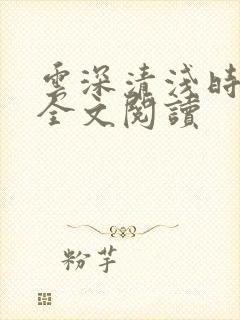 雲深清淺時
全文閱讀
粉芋